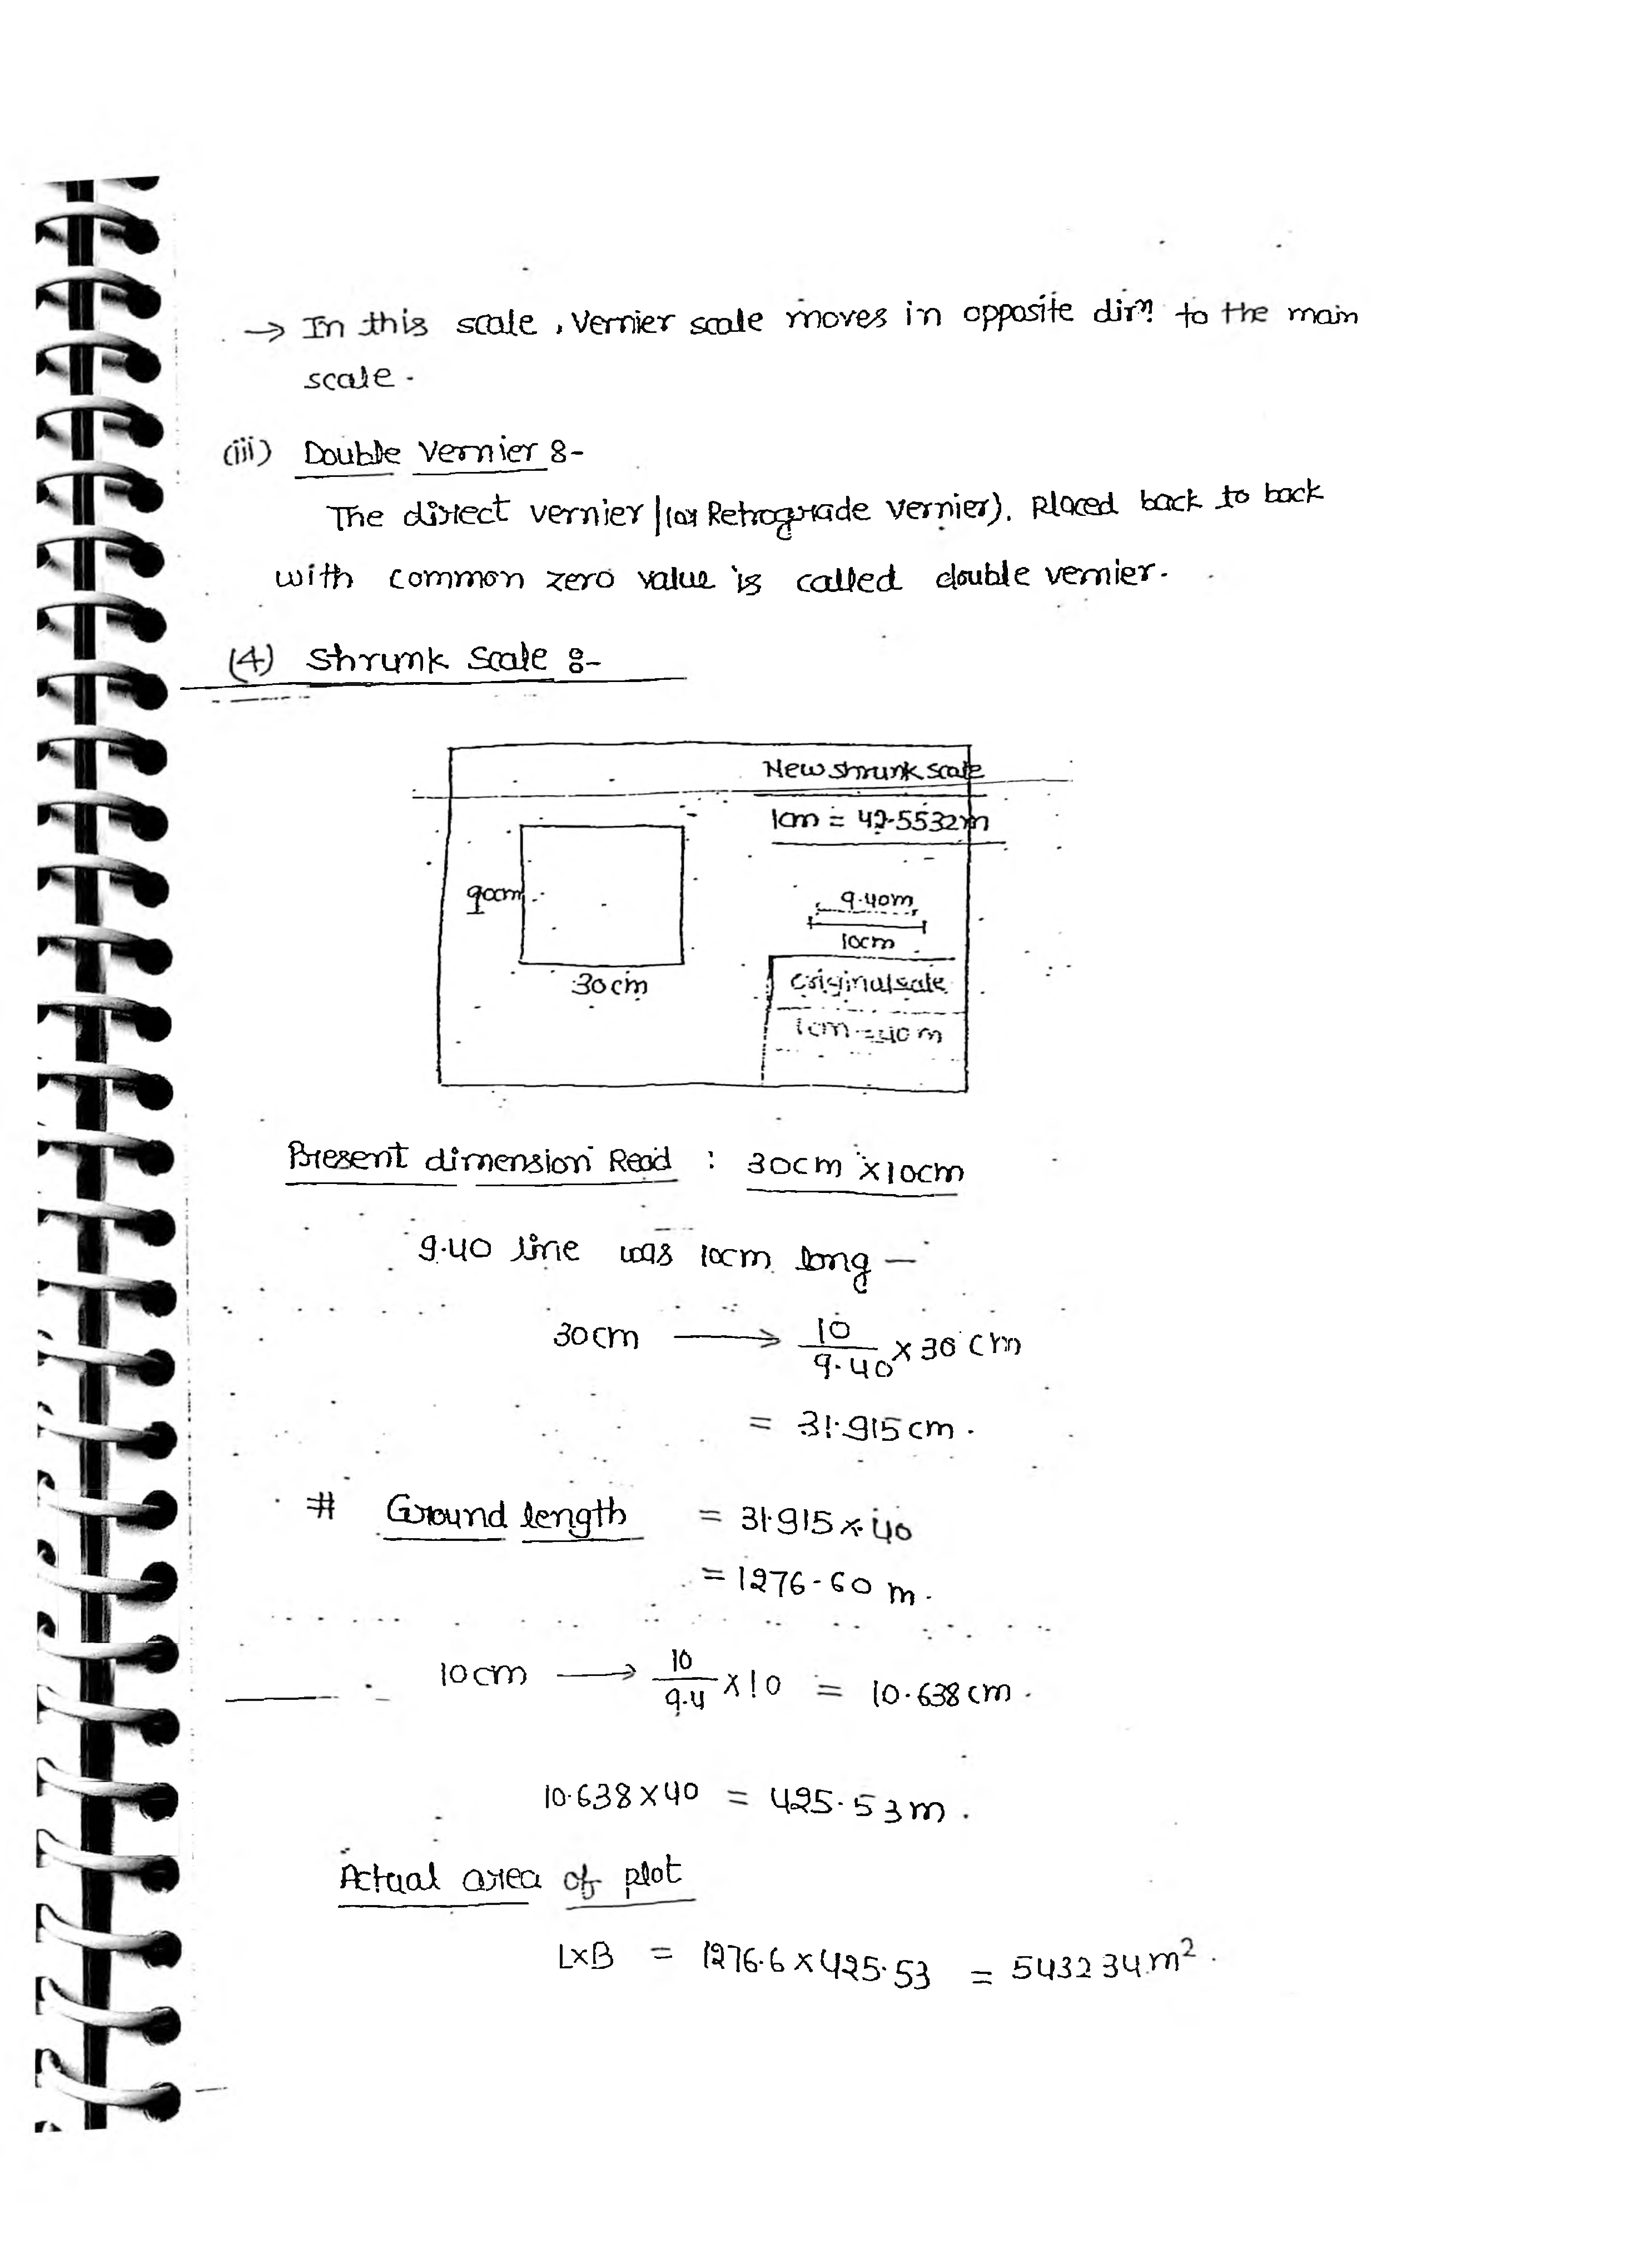 → In this scale, Vernier scale moves in opposite dirn. to the main
scale.
(iii) Double Vernier :-
The direct vernier (or Retrograde vernier). Placed back to back
with common zero value is called double vernier.
(4) Shrunk Scale :-
New shrunk scale
1cm = 42.5532m
9.40m
10cm
30cm
Original scale
1cm = 40m
Present dimension Read : 30cm × 10cm
9.40 line was 10cm long —
30cm → 10/9.40 × 30 cm
= 31.915cm.
# Ground length = 31.915 × 40
= 1276.60 m.
10cm → 10/9.4 × 10 = 10.638cm.
10.638 × 40 = 425.53m.
Actual area of plot
L×B = 1276.6 × 425.53 = 543234m²